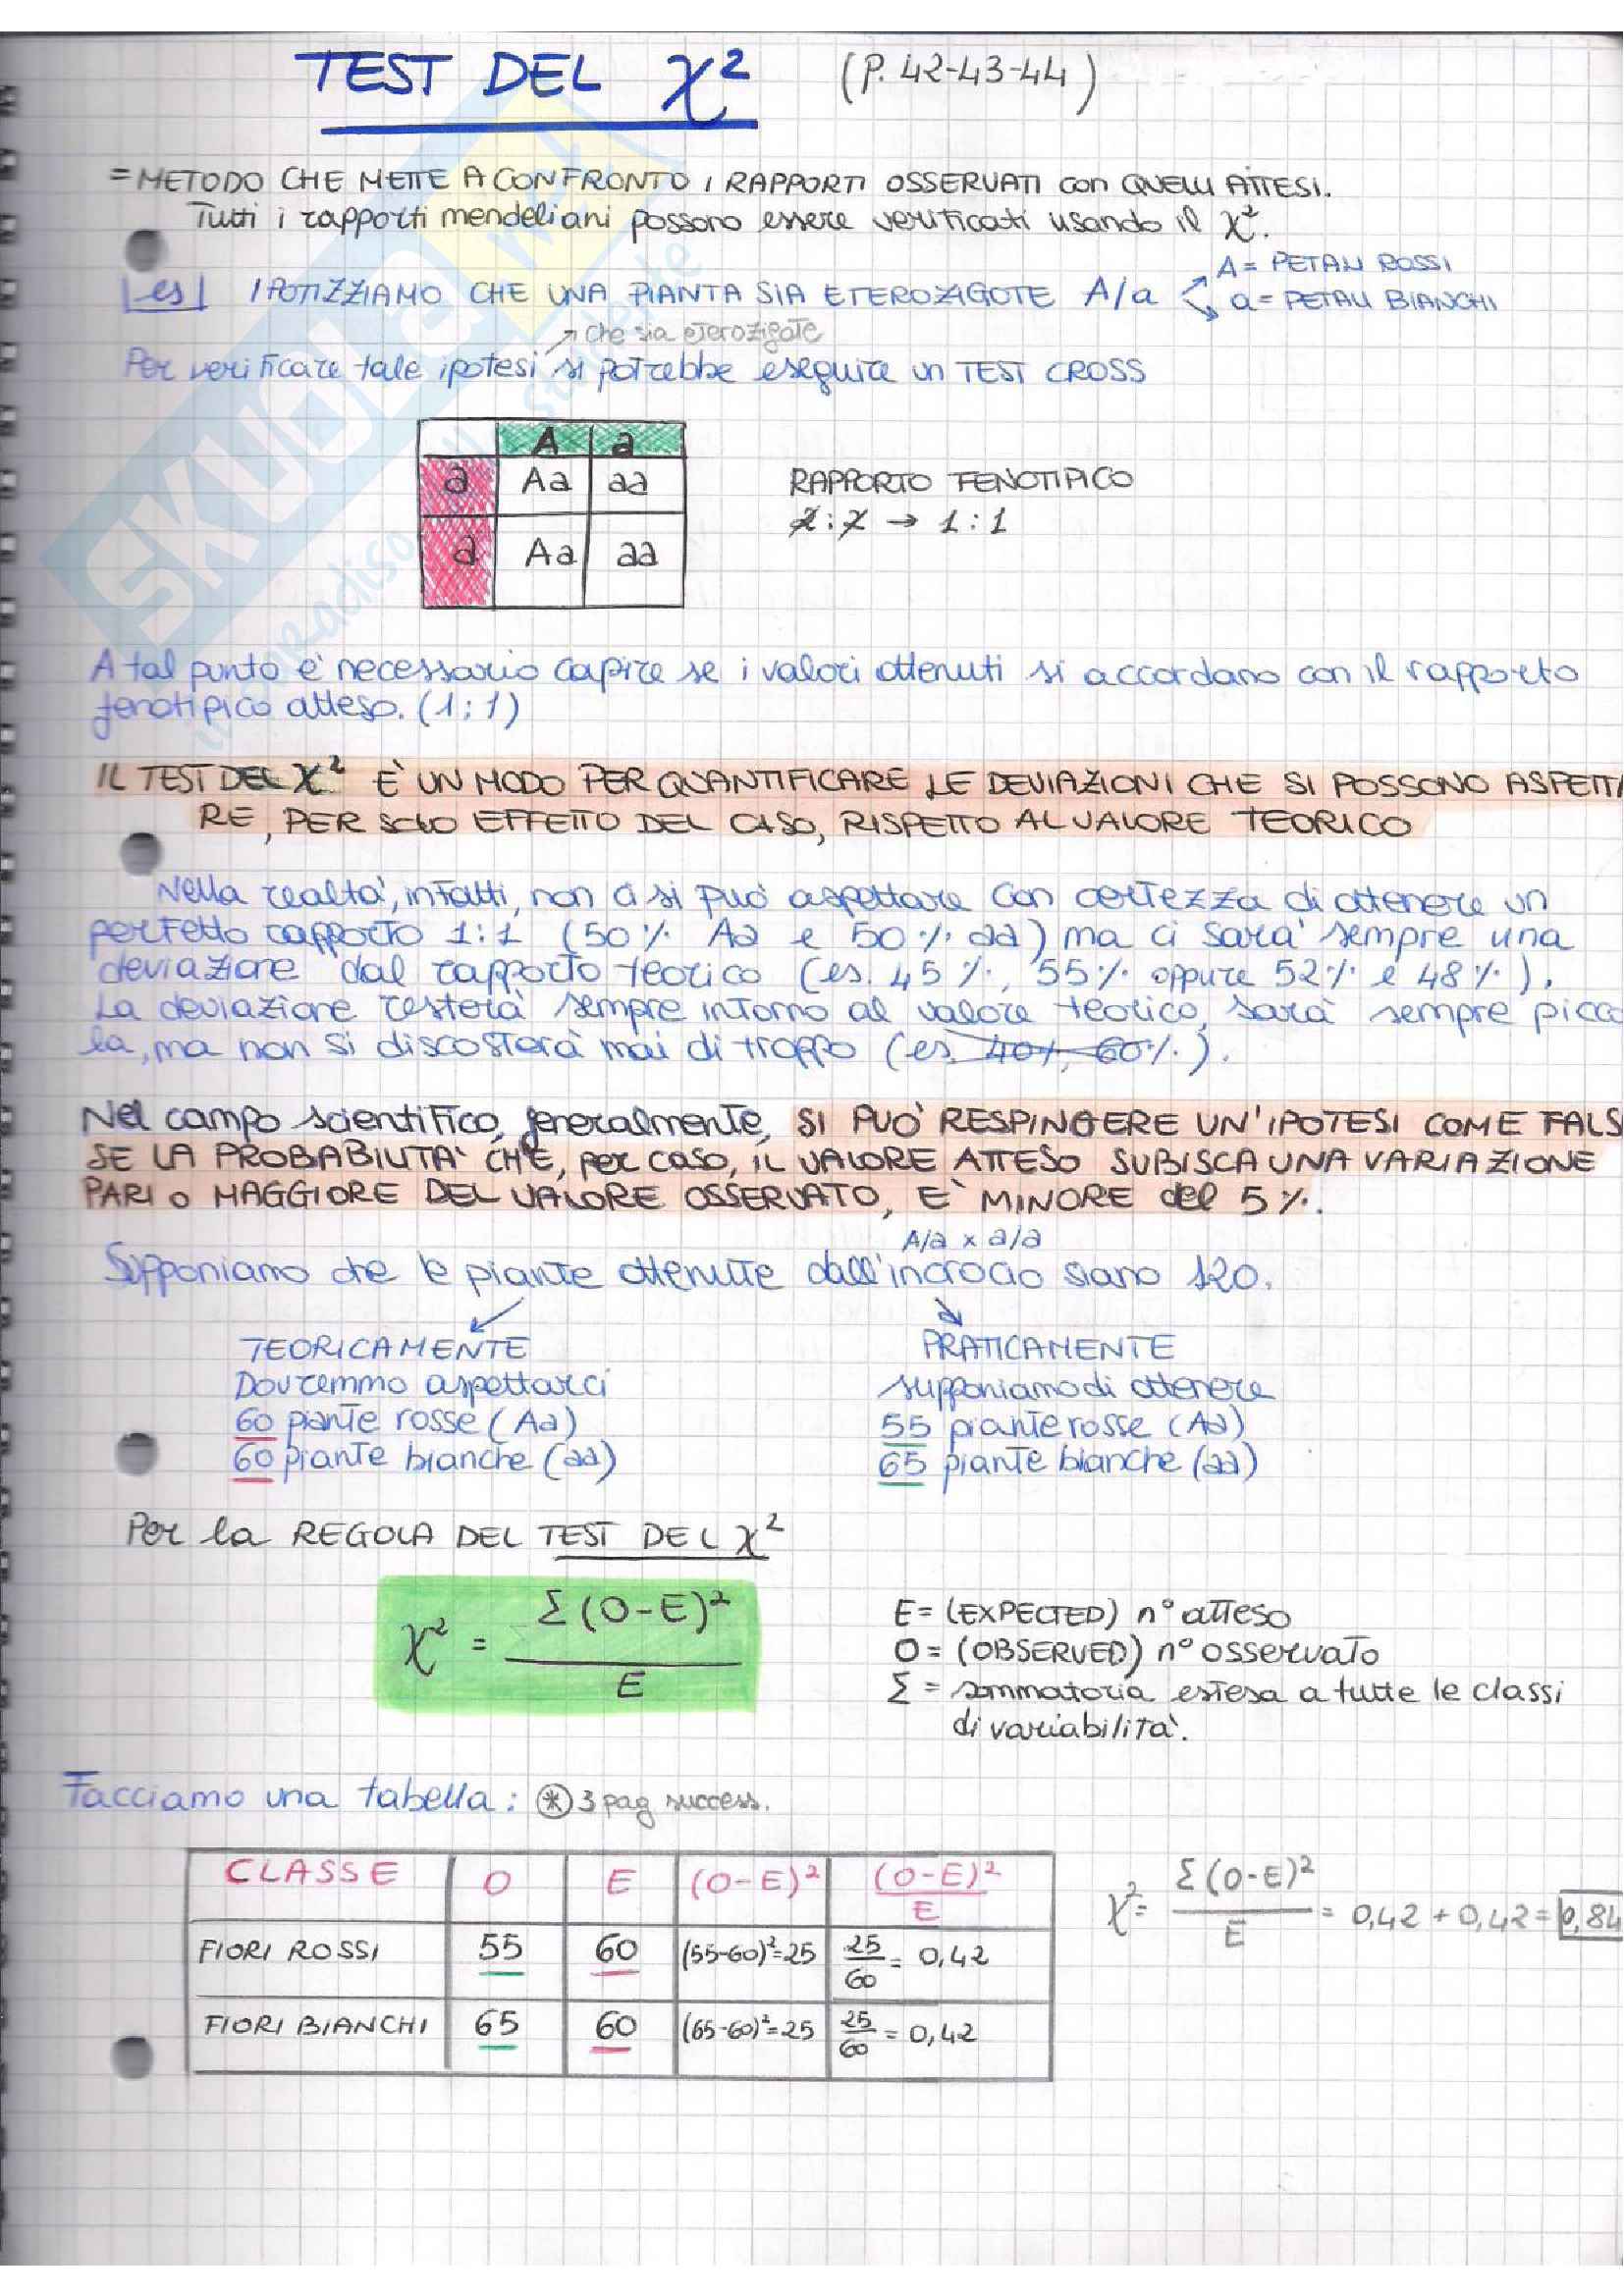 TEST DEL χ² (P. 42-43-44)
= METODO CHE METTE A CONFRONTO I RAPPORTI OSSERVATI con QUELLI ATTESI.
Tutti i rapporti mendeliani possono essere verificati usando il χ².
A = PETALI ROSSI
es IPOTIZZIAMO CHE UNA PIANTA SIA ETEROZIGOTE A/a a = PETALI BIANCHI
↗ che sia eterozigote
Per verificare tale ipotesi si potrebbe eseguire un TEST CROSS
A a
a Aa aa
a Aa aa
RAPPORTO FENOTIPICO
2:2 → 1:1
A tal punto è necessario capire se i valori ottenuti si accordano con il rapporto
fenotipico atteso. (1:1)
IL TEST DEL χ² È UN MODO PER QUANTIFICARE LE DEVIAZIONI CHE SI POSSONO ASPETTA
RE, PER SOLO EFFETTO DEL CASO, RISPETTO AL VALORE TEORICO
Nella realtà, infatti, non ci si può aspettare con certezza di ottenere un
perfetto rapporto 1:1 (50% Aa e 50% aa) ma ci sarà sempre una
deviazione dal rapporto teorico (es. 45%, 55% oppure 52% e 48%).
La deviazione resterà sempre intorno al valore teorico, sarà sempre picco
la, ma non si discosterà mai di troppo (es. 40%, 60%).
Nel campo scientifico, generalmente, SI PUÒ RESPINGERE UN'IPOTESI COME FALS
SE LA PROBABILITÀ CHE, per caso, IL VALORE ATTESO SUBISCA UNA VARIAZIONE
PARI O MAGGIORE DEL VALORE OSSERVATO, È MINORE del 5%.
A/a x a/a
Supponiamo che le piante ottenute dall'incrocio siano 120.
TEORICAMENTE
Dovremmo aspettarci
60 piante rosse (Aa)
60 piante bianche (aa)
PRATICAMENTE
supponiamo di ottenere
55 piante rosse (Aa)
65 piante bianche (aa)
Per la REGOLA DEL TEST DEL χ²
χ² = Σ(O-E)² / E
E = (EXPECTED) n° atteso
O = (OBSERVED) n° osservato
Σ = sommatoria estesa a tutte le classi
di variabilità.
Facciamo una tabella: * 3 pag success.
CLASSE O E (O-E)² (O-E)²/E
FIORI ROSSI 55 60 (55-60)²=25 25/60 = 0,42
FIORI BIANCHI 65 60 (65-60)²=25 25/60 = 0,42
χ² = Σ(O-E)²/E = 0,42 + 0,42 = 0,84